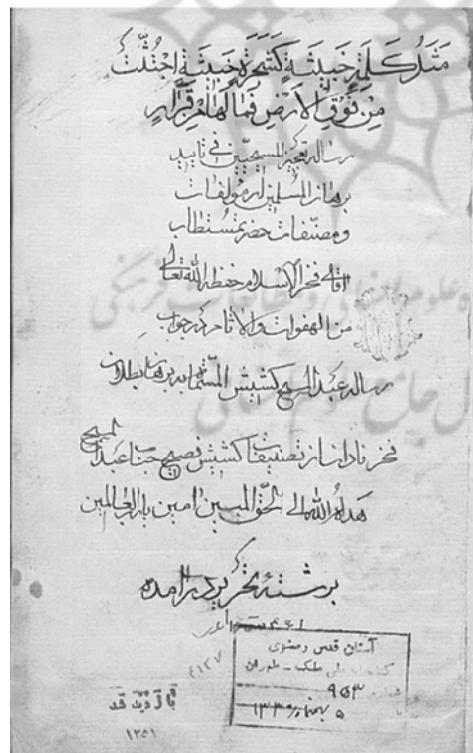 مَثَلُ كَلِمَةٍ خَبِيثَةٍ كَشَجَرَةٍ خَبِيثَةٍ اجْتُثَّتْ
مِنْ فَوْقِ الْأَرْضِ فَمَا لَهَا مِنْ قَرَارٍ
رساله تعجیز المسیحیین فی تایید
برهان المسلمین از مؤلفات
و مصنفات حضرت مستطاب
اقای فخر الاسلام حفظه الله تعالی
من الهفوات والاثام که در جواب
رساله عبد المسیح کشیش المسمی به برهان بطلان
فخر نادان از تصنیفات کشیش فصیح جناب عبد المسیح
هداه الله الی الحق المبین امین یارب العالمین
برشته تحریر در آمده
آستان قدس رضوی
کتابخانه ملی ملک - طهران
شماره ۹۵۳
۴۱۲۷
بازدید شد
۱۳۵۱